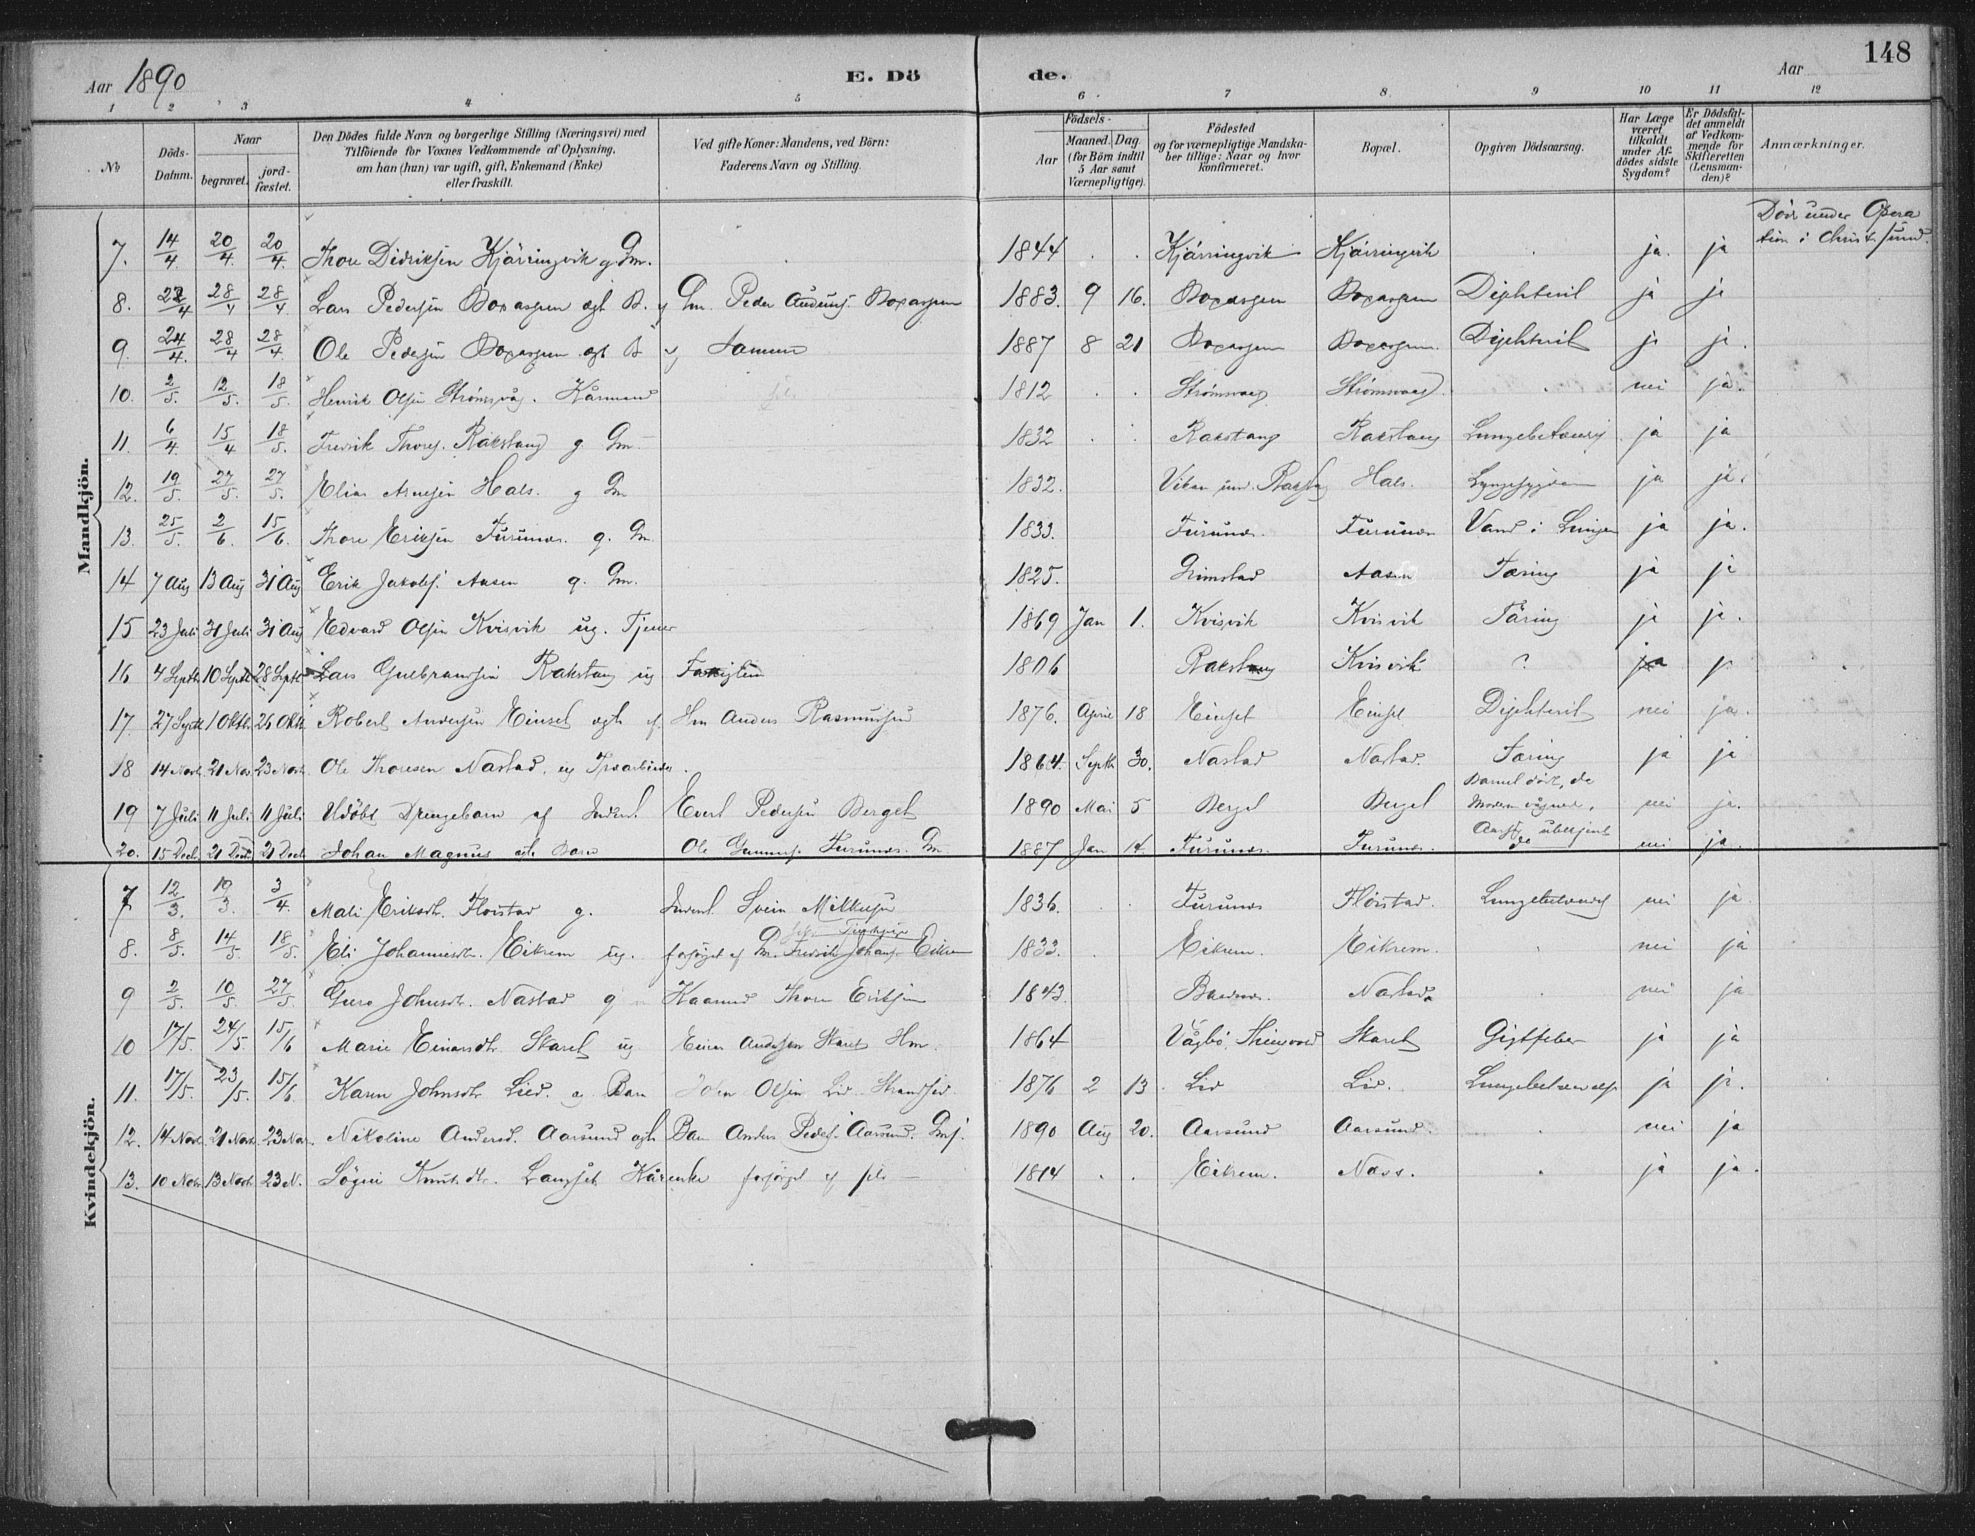 148
Aar 1890
E. Dö de.
Aar
1 2 3 4 5 6 7 8. 9 10 11 12
No
Döds-Datum.
Naar
begravet.
jord-fæstet.
Den Dödes fulde Navn og borgerlige Stilling (Næringsvei) med
Tilföiende for Voxnes Vedkommende af Oplysning,
om han (hun) var ugift, gift, Enkemand (Enke)
eller fraskilt.
Ved gifte Koner: Mandens, ved Börn:
Faderens Navn og Stilling.
Födsels-
Aar
Maaned. Dag
(for Börn indtil
5 Aar samt
Værnepligtige).
Födested
og for værnepligtige Mandska-
ber tillige: Naar og hvor
konfirmeret.
Bopæl.
Opgiven Dödsaarsag.
Har Læge
været
tilkaldt
under Af-
dödes sidste
Sygdom?
Er Dödsfal-
det anmeldt
af Vedkom-
mende for
Skifteretten
(Lensman-
den)?
Anmærkninger.
Mandkjön.
Död under Opera
tion i Christsund.
7. 14/4 20/4. 20/4. Thore Didriksen Kjärringvik g Gm. 1844 Kjärringvik Kjärringvik ja. ja
8. 22/4 28/4 28/4 Lars Pedersen ægt B. Gm. Peder 1883. 9 16. Diphterit ja ja
9. 24/4. 28/4 28/4. Ole Pedersen ægt B Samme 1887 8 21 Diphterit ja ja.
10. 2/5. 12/5. 18/5. Henrik Olsen Strömsvåg. Kårmand 1812 Strömsvaag Strömsvaag. nei ja.
11. 6/4. 15/4 18/5. Fredrik Thores. Rakstang g Gm 1832 Rakstang Rakstang ja ja
12. 19/5. 27/5. 27/5. Elias Arnesen Hals. g Gm 1832. Hals. ja ja.
13. 25/5. 2/6. 15/6. Thore Eriksen Furunes. g. Gm 1833. Furunes. Furunes Vand i Lungen ja ja.
14 7 Aug 13 Aug 31 Aug Erik Jakobs. Aasen g. Gm. 1825. Grimstad Aasen Tæring ja ja
15 23 Juli 31 Juli 31 Aug Edvard Olsen Kvisvik ug. Tjener 1869 Jan 1. Kvisvik Kvisvik Täring ja ja.
16 4 Septb. 10 Septb 28 Septb Lars Gulbransen Rakstang ug 1806 Rakstang Kvisvik ? ja
17. 27 Septb 1 Oktb. 26 Oktb. Robert Andersen Einset ægte af Hm Anders Rasmussen 1876. April 18 Einset Einset Diphterit nei ja.
18 14 Novb. 21 Nov. 23 Novb. Ole Thoresen Nastad. ug 1864. Septb 30. Nastad Nastad. Tæring ja ja
19 7 Juli 11 Juli 11 Juli Udöbt Drengebarn af Inderst Evert Pedersen Berget 1890 Mai 5 Berget Berget Barnet död, da
Modern vågnede, nei ja.
20. 15 Decb. 21 Decb. 21 Decb. Johan Magnus ægte Barn Ole Gunnars. Furunes. Gm 1887 Jan 14. Furunes. Furunes. nei ja.
Kvindekjön.
7 12/3. 19/3. 3/4. Mali Eriksdtr. Flöistad g. Inderst Svein Mikkelsen 1836. Furunes Flöistad. nei ja
8. 8/5. 14/5. 18/5. Eli Johannesdtr. Eikrem ug. forsörget af Gm. Fredrik Johans. Eikrem 1833. Eikrem. Eikrem. nei ja
9 2/5. 10/5. 27/5 Guro Johnsdtr. Nastad g Kaarmd Thore Eriksen 1843 Nastad. nei ja
10 17/5. 24/5. 15/6 Marie Einarsdtr. Skaret ug Einar Andersen Skaret Hm. 1864 Vågbö, Thingvold Skaret Gigtfeber ja ja
11. 17/5. 23/5. 15/6. Karen Johnsdtr. Lied. Barn John Olsen Lid. Strandsid. 1876 2 13. Lid Lid. ja ja.
12. 14 Novb. 21 Novb. 23 Nov. Nikoline Andersd. Aarsund ægte Barn Anders Peders. Aarsund. 1890 Aug 20. Aarsund Aarsund. nei ja
13. 10 Novb. 13 Novb. 23 N. Knutsdtr. Langset Kårenke forsörget af 1814 Eikrem. Næss. ja ja.